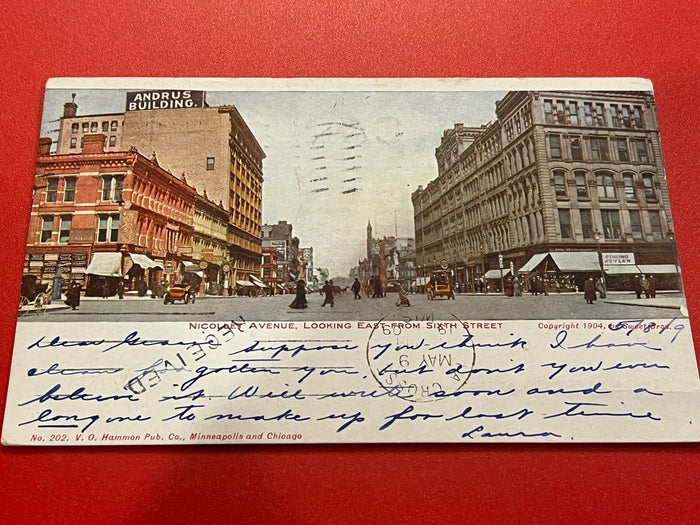 ANDRUS
BUILDING.
NICOLLET AVENUE, LOOKING EAST FROM SIXTH STREET
Copyright 1904, by Sweet Bros.
RECEIVED
MAY 9
Dear suppose you think I have
clean forgotten you, but don't you ever
believe it. Will write soon and a
long one to make up for last time
Laura.
No. 202. V. O. Hammon Pub. Co., Minneapolis and Chicago